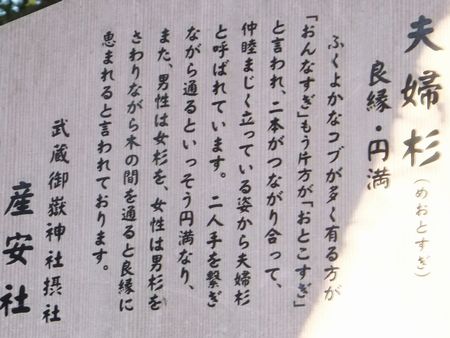 夫婦杉(めおとすぎ)
良縁・円満
ふくよかなコブが多く有る方が
「おんなすぎ」もう片方が「おとこすぎ」
と言われ、二本がつながり合って、
仲睦まじく立っている姿から夫婦杉
と呼ばれています。二人手を繋ぎ
ながら通るといっそう円満なり、
また、男性は女杉を、女性は男杉を
さわりながら木の間を通ると良縁に
恵まれると言われております。
武蔵御嶽神社摂社
産安社